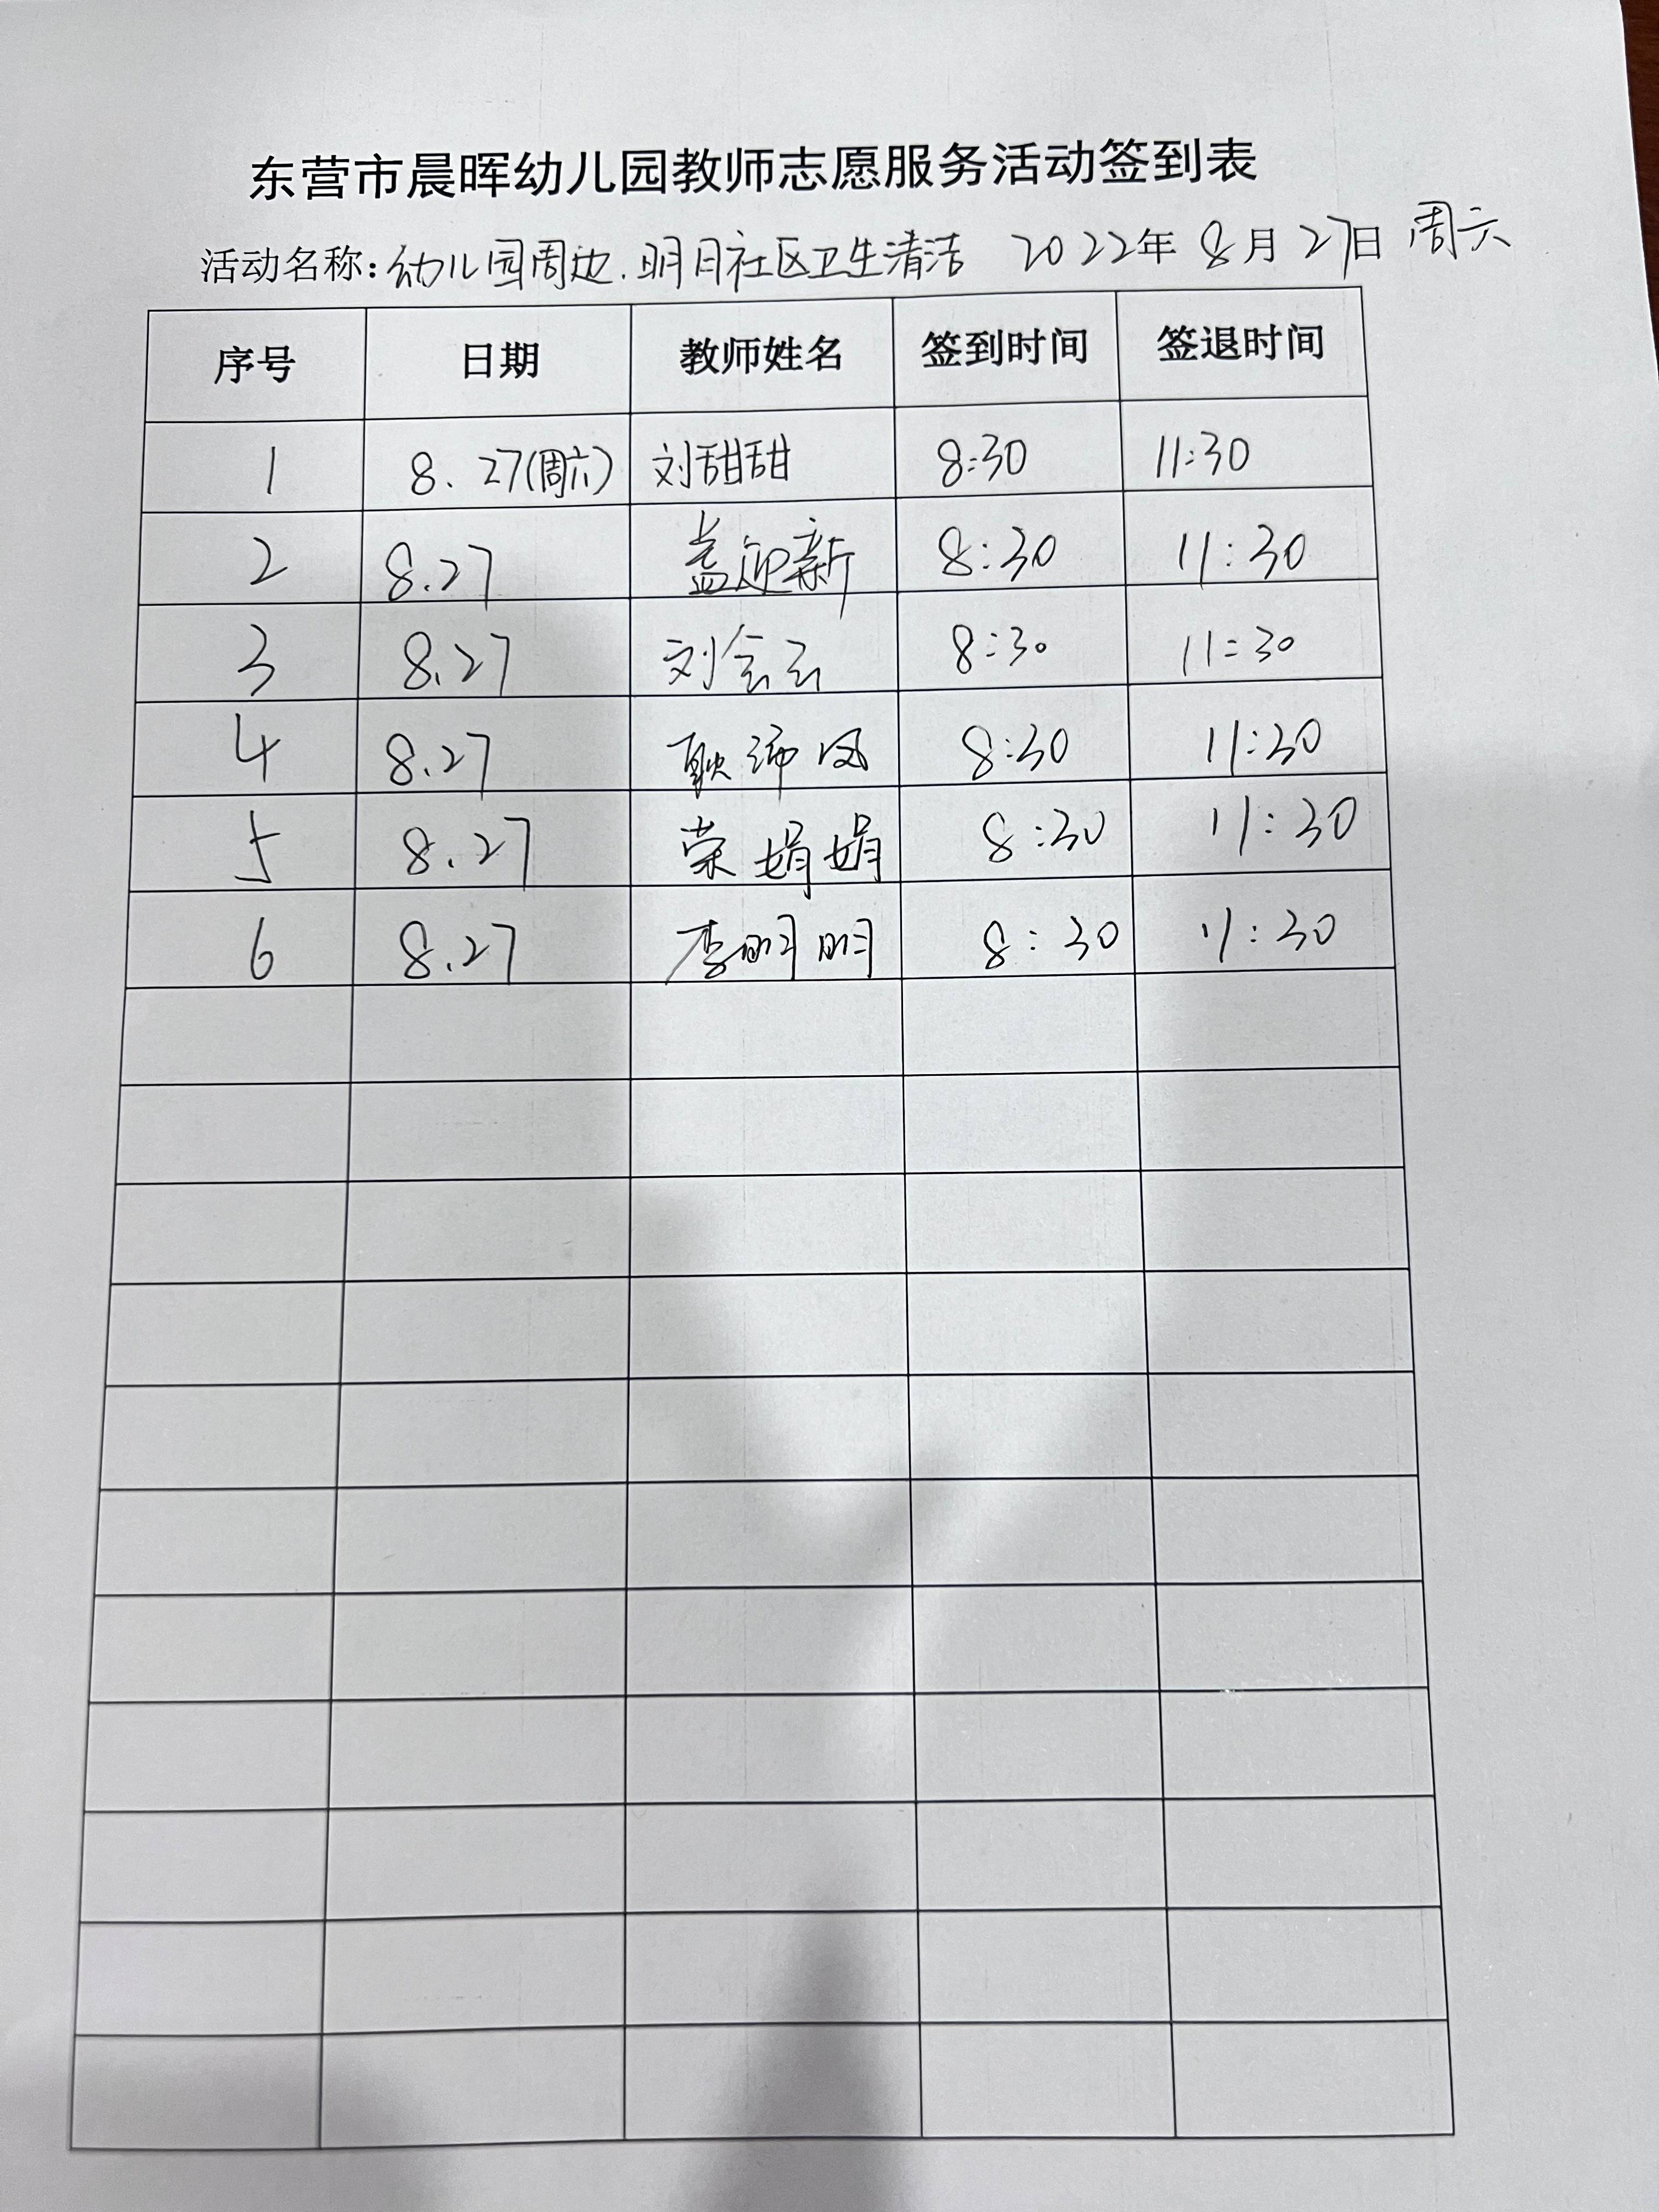 东营市晨晖幼儿园教师志愿服务活动签到表
活动名称:幼儿园周边.明月社区卫生清洁 2022年 8月27日 周六
序号 日期 教师姓名 签到时间 签退时间
1 8.27(周六) 刘甜甜 8:30 11:30
2 8.27 盖迎新 8:30 11:30
3 8.27 刘会云 8:30 11:30
4 8.27 8:30 11:30
5 8.27 荣娟娟 8:30 11:30
6 8.27 李明明 8:30 11:30